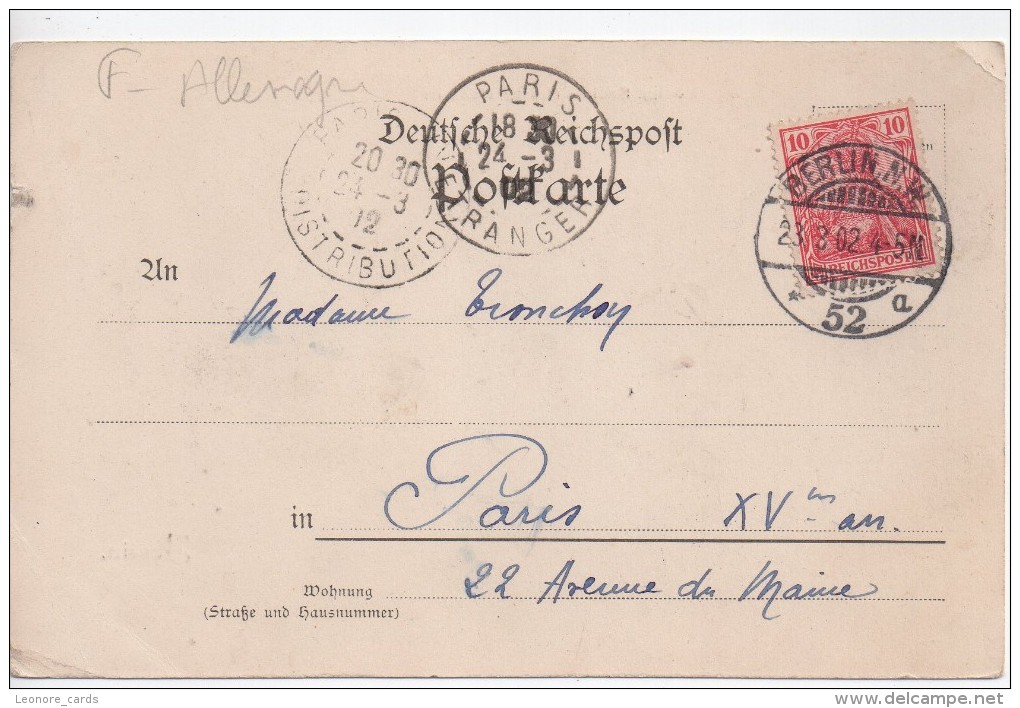 F- Allemagne
PARIS
18 30
24 -3
02
ETRANGER
PARIS
20 30
24 -3
12
DISTRIBUTION
Deutsche Reichspost
Postkarte
10 10
REICHSPOST
BERLIN N.W.
23.3.02.4-5N.
* 52 a
An
Madame Tronchoy
in Paris XVme arr.
22 Avenue du Maine
Wohnung
(Straße und Hausnummer)
Leonore_cards
www.delcampe.net